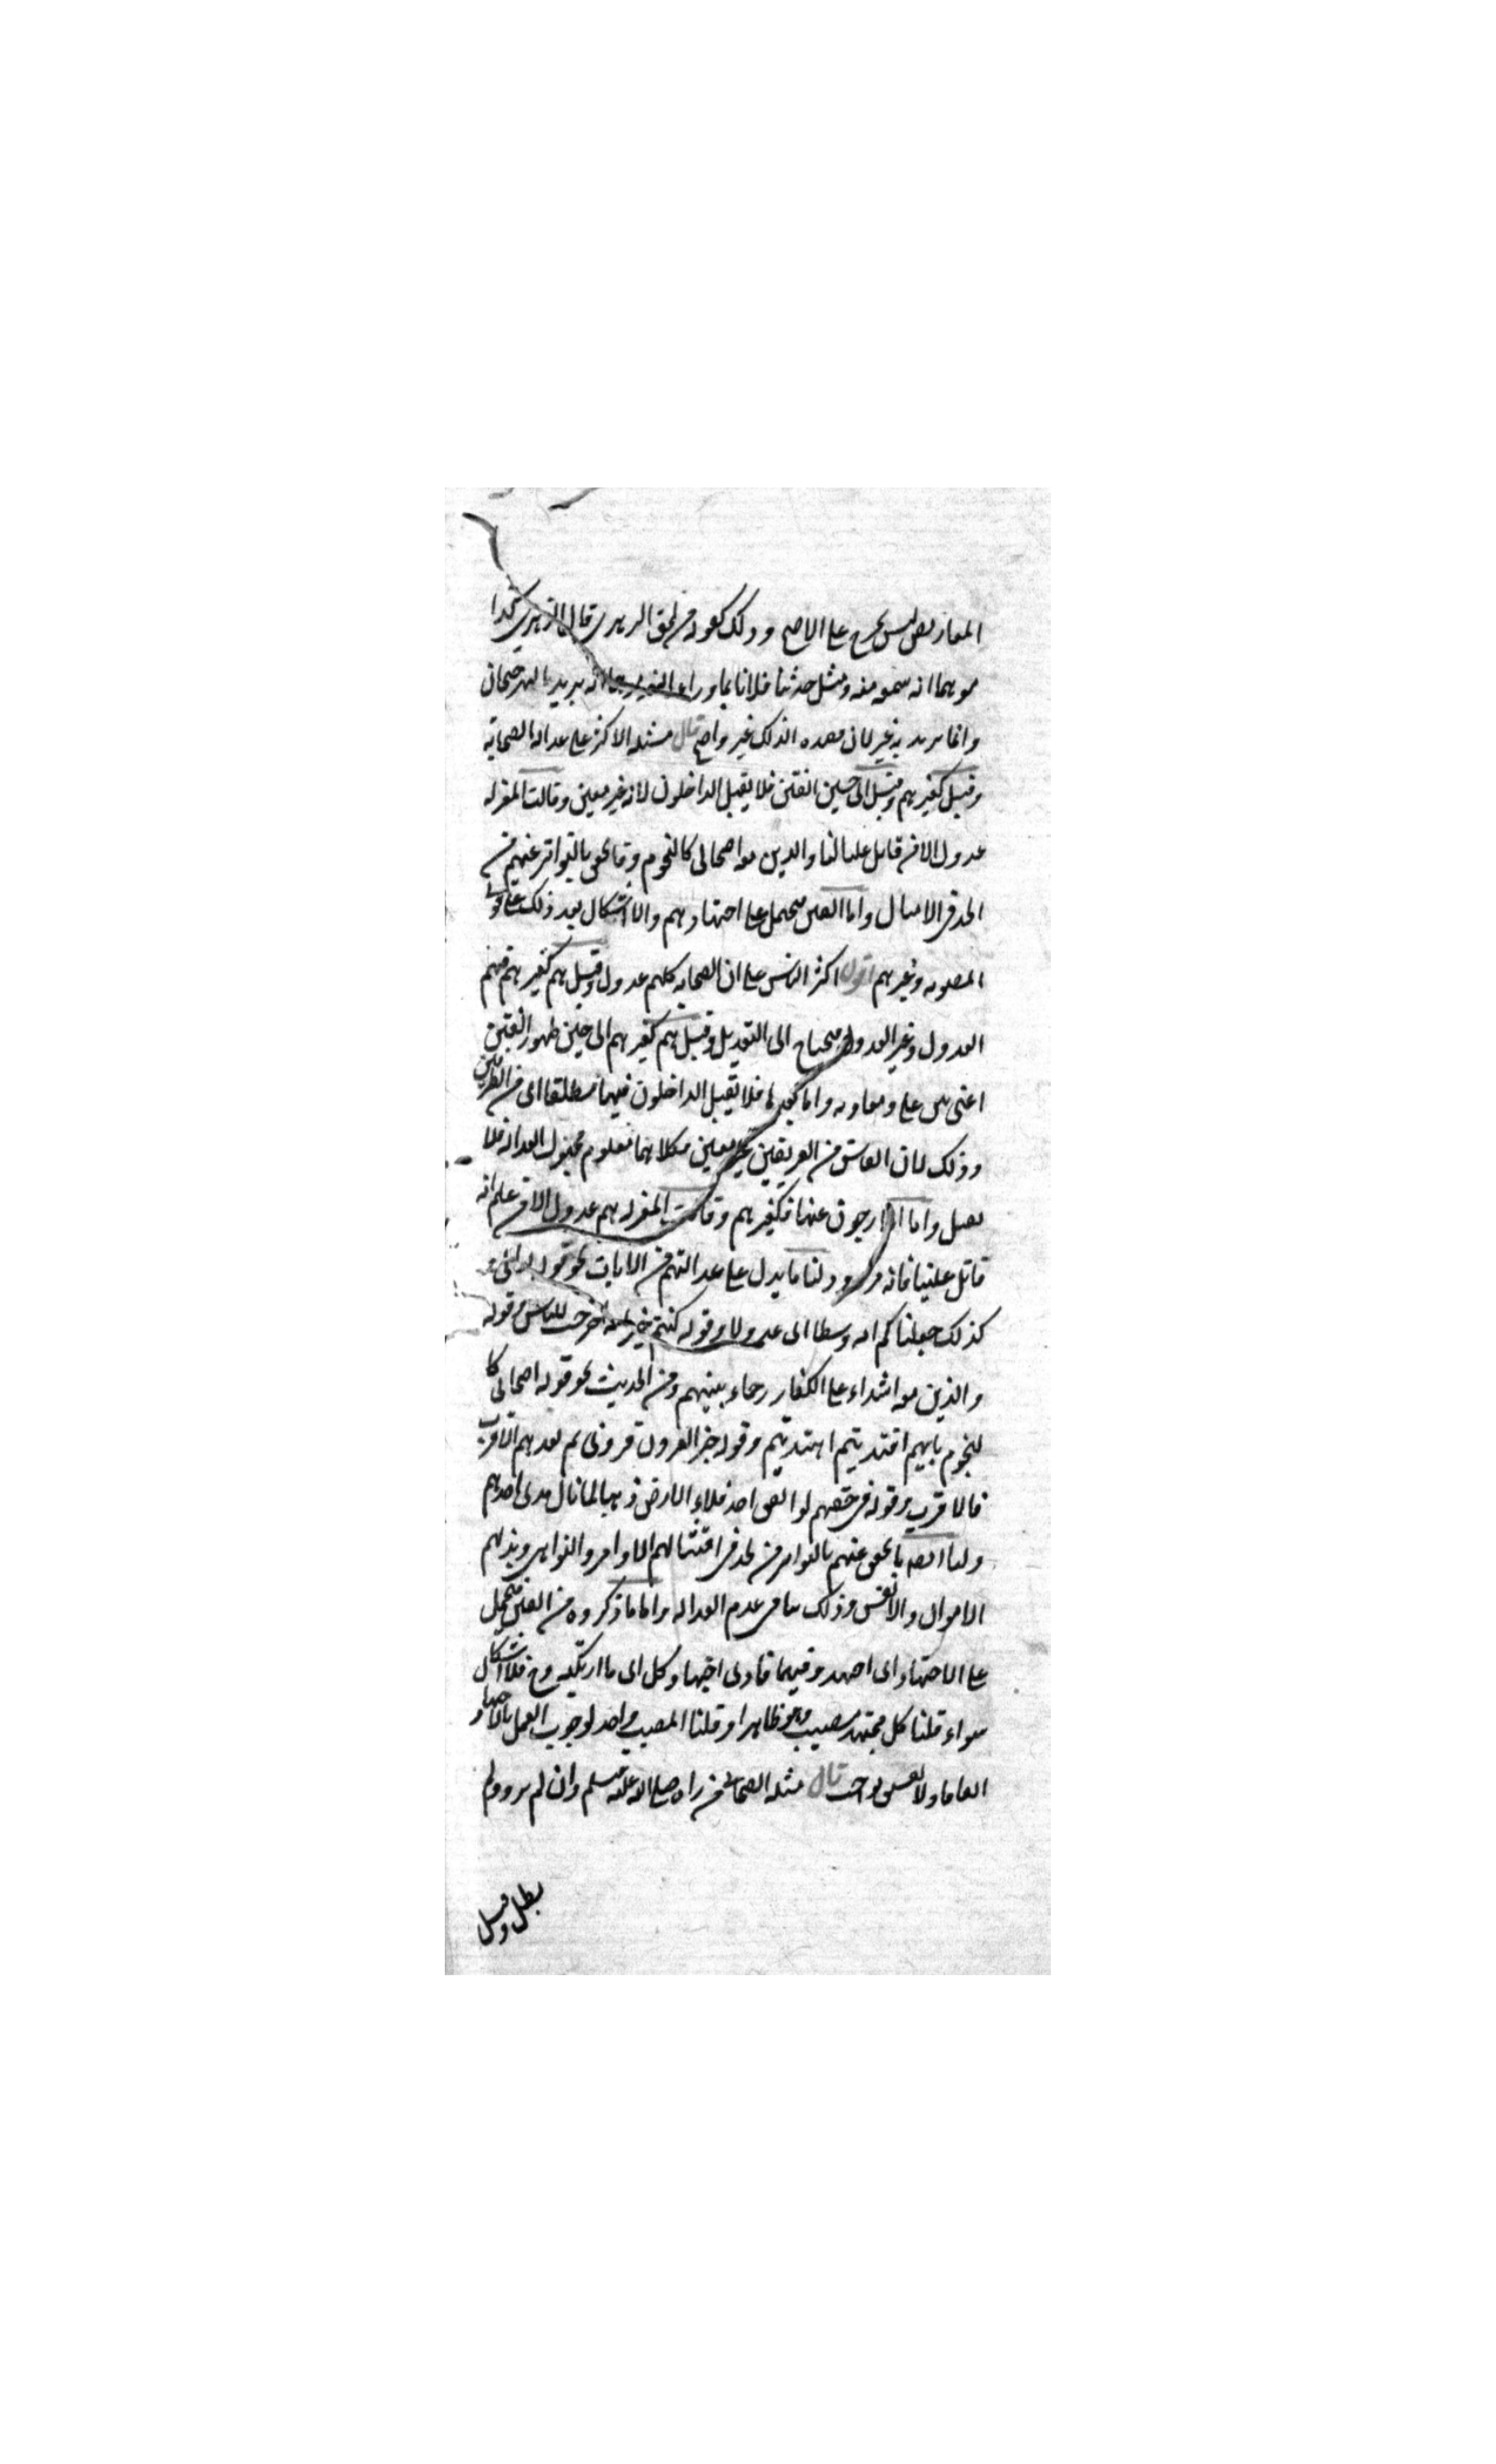 المعاريض ليس بجرح على الاصح وذلك كقول من لحق الزهري قال الزهري كذا
موهما انه سمعه منه ومثل حدثنا فلان بما وراء النهر يريد نهر جيحان
وانما يريد به غيره لان ذلك غير واضح قال مسئلة الاكثر على عدالة الصحابة
وقيل كغيرهم وقيل الى حين الفتن فلا يقبل الداخلون لانه غير معين وقالت المعتزلة
عدول الا من قاتل عليا لنا والذين معه اصحابي كالنجوم وما تحقق بالتواتر عنهم من
الجد في الامتثال واما الفتن فيحمل على اجتهادهم ولا اشكال بعد ذلك على قول
المصوبه وغيرهم اقول اكثر الناس على ان الصحابه كلهم عدول وقيل هم كغيرهم فيهم
العدول وغير العدول فيحتاج الى التعديل وقيل هم كغيرهم الى حين ظهور الفتن
اعنى بين على ومعاويه واما بعدها فلا يقبل الداخلون فيها مطلقا اى من الطرفين
وذلك لان الفاسق من الفريقين غير معين وكلاهما معلوم مجهول العداله فلا
يقبل واما الخارجون عنها فكغيرهم وقالت المعتزله هم عدول الا من علم انه
قاتل عليا فانه مردود لنا ما يدل على عدالتهم من الايات نحو قوله تعالى و
كذلك جعلناكم امه وسطا اى عدولا وقوله كنتم خير امه اخرجت للناس وقوله
والذين معه اشداء على الكفار رحماء بينهم ومن الحديث نحو قوله اصحابي كا
لنجوم بايهم اقتديتم اهتديتم وقوله خير القرون قرنى ثم بعدهم الاقرب
فالاقرب وقوله في حقهم لو انفق احد ملاء الارض ذهبا لما نال مدى احدهم
ولنا ايضا ما تحقق عنهم بالتواتر من الجد في امتثالهم الاوامر والنواهى وبذلهم
الاموال والانفس وذلك ينافى عدم العداله واما ما ذكروه من الفتن فيحمل
على الاجتهاد اى اجتهدوا فيها فادى اجتهاد كل الى ما ارتكبه وح فلا اشكال
سواء قلنا كل مجتهد مصيب وهو ظاهر او قلنا المصيب واحد لوجوب العمل بالاجتهاد
اتفاقا ولا تفسيق بواجب قال مسئله الصحابى من راه صلى الله عليه وسلم وان لم يرو ولم
يطل وقيل